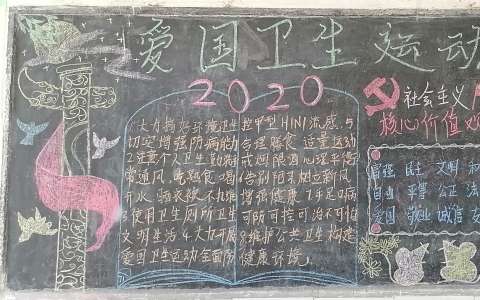 爱国卫生运动
2020
1大力搞好环境卫生
切实增强防病能
2注意个人卫生勤
常通风 喝
开水
使用卫生厕所卫生
文明生活4大力开展
爱国卫生运动全面防
控甲型H1N1流感
合理膳食 适量运动
戒烟限酒心理平衡
告别陋习树立新风
增强健康
可防可控可治不可怕
维护公共卫生 构建
健康环境
社会主义
核心价值观
富强 民主 文明 和
自由 平等 公正 法
爱国 敬业 诚信 友